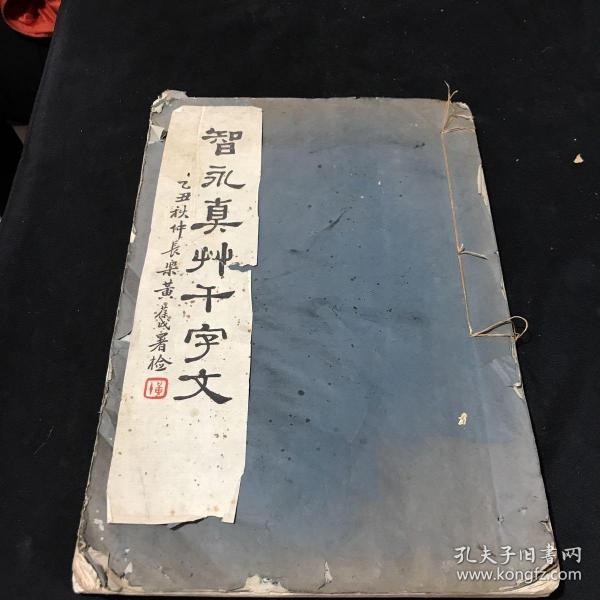 智永真艸千字文
乙丑秋仲長樂黃葆戉署檢
孔夫子旧书网
www.kongfz.com